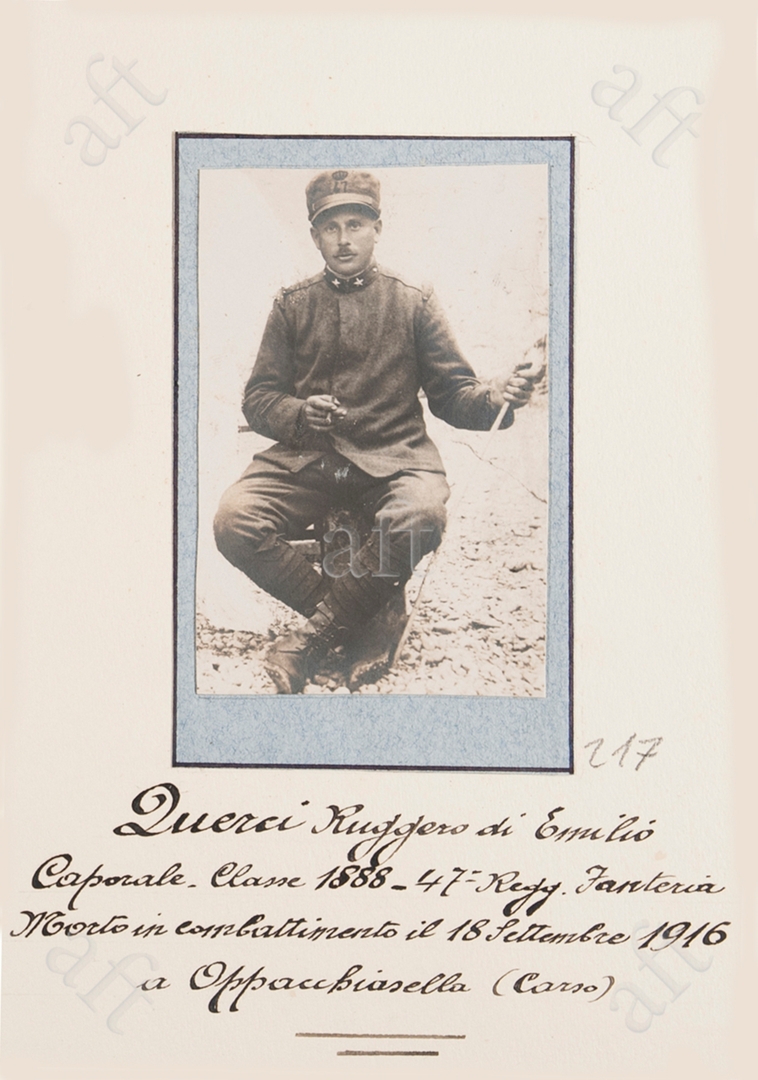 aft aft
17
aft
217
Querci Ruggero di Emilio
Caporale. Classe 1888 - 47° Regg. Fanteria
Morto in combattimento il 18 Settembre 1916
a Oppacchiasella (Carso)
aft aft